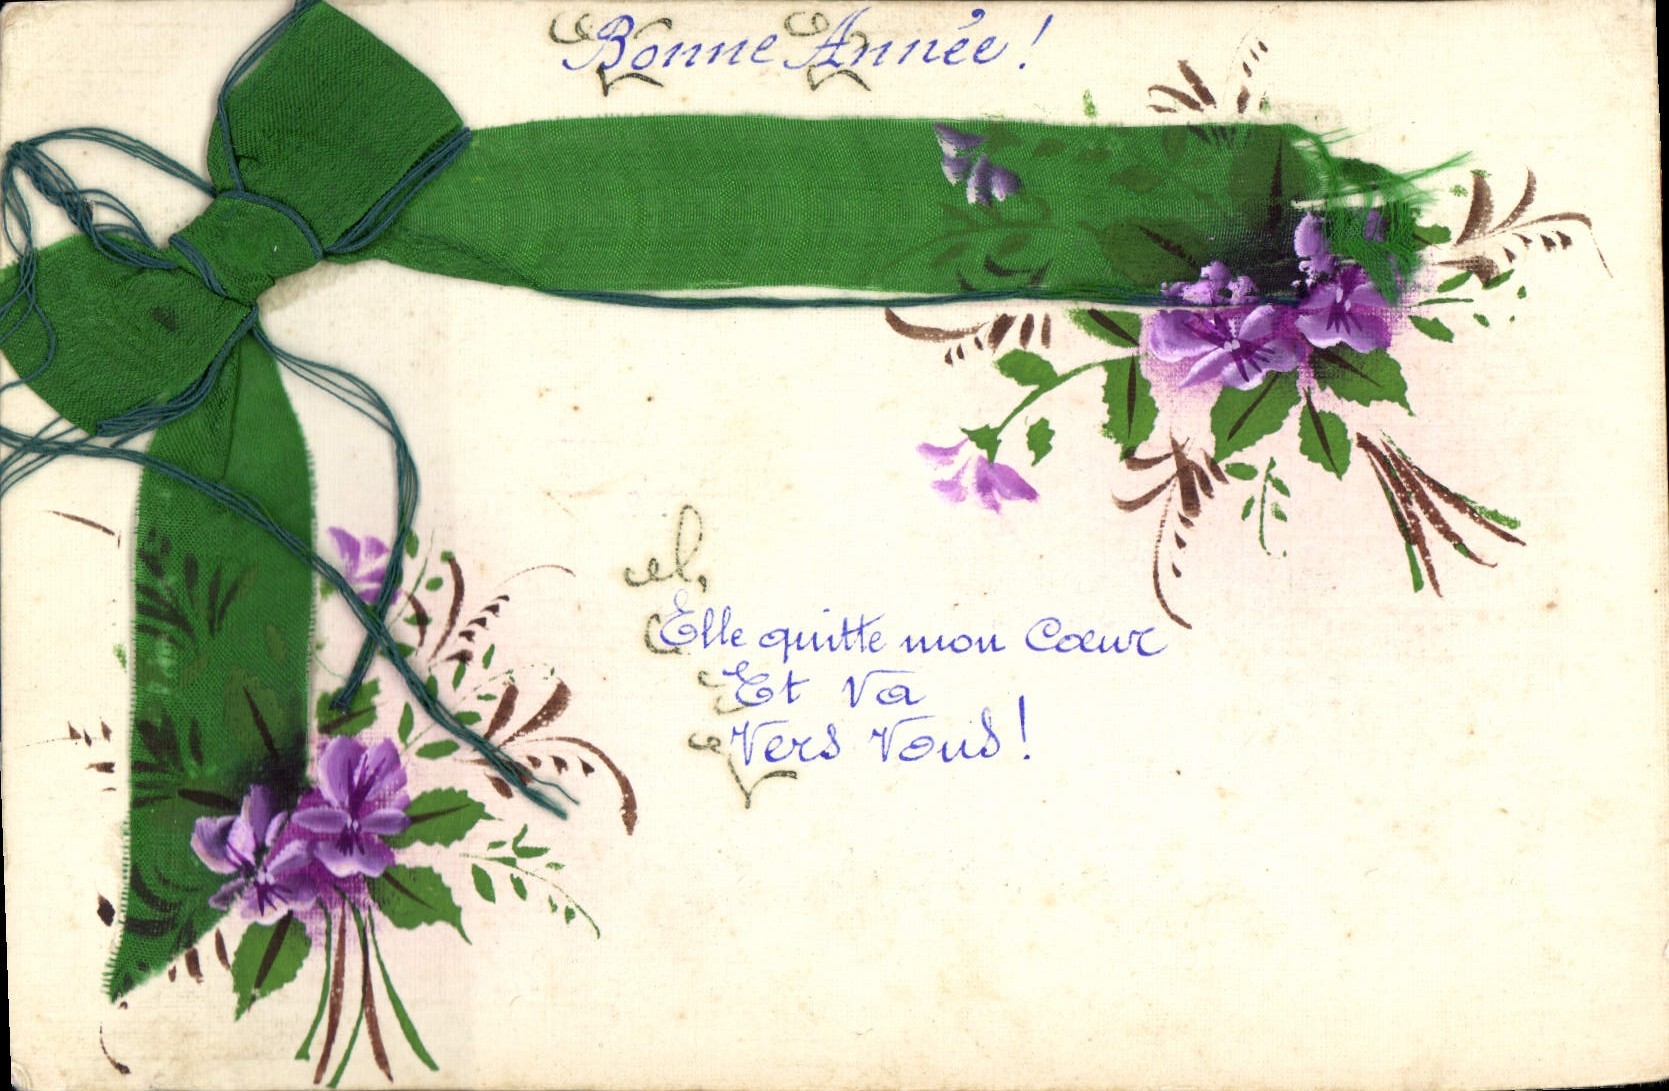 Bonne Année!
Elle quitte mon Cœur
Et Va
Vers Vous!